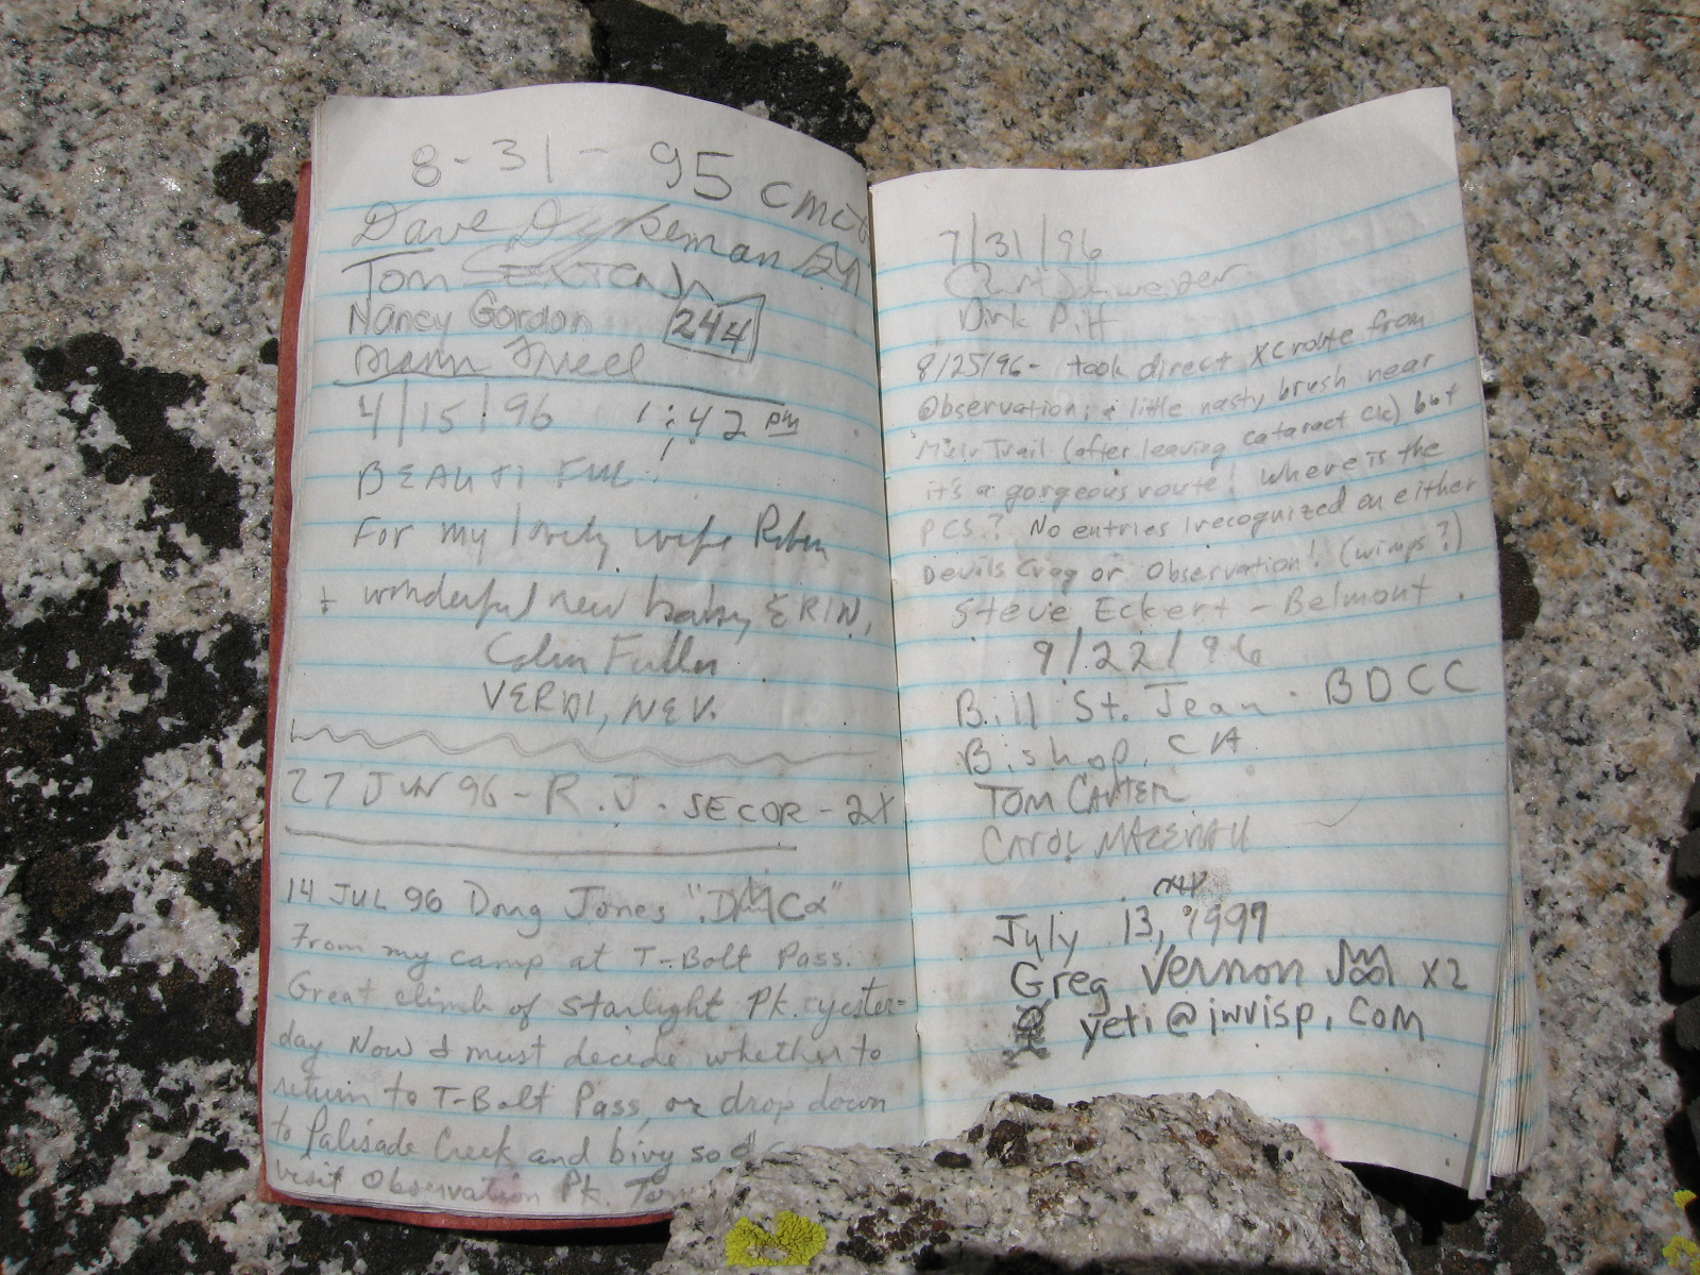 8-31-95
Dave Dykeman
Tom
Nancy Gordon 244
4/15/96 1:42 pm
BEAUTIFUL!
For my lovely wife Robin
+ wonderful new baby ERIN,
Colin Fuller
VERDI, NEV.
27 JUN 96 - R.J. SECOR - 2X
14 JUL 96 Doug Jones
From my camp at T-Bolt Pass.
Great climb of Starlight Pk. yester-
day Now I must decide whether to
return to T-Bolt Pass, or drop down
to Palisade Creek and bivy so
visit Observation Pk.
7/31/96
Dirk Pitt
8/25/96 - took direct XC route from
Observation; a little nasty brush near
Muir Trail (after leaving Cataract Ck) but
it's a gorgeous route! Where is the
PCS? No entries I recognized on either
Devils Crag or Observation! (wimps?)
Steve Eckert - Belmont.
9/22/96
Bill St. Jean - BDCC
Bishop, CA
TOM CARTER
CAROL
July 13, 1997
Greg Vernon X2
yeti@iwvisp.com